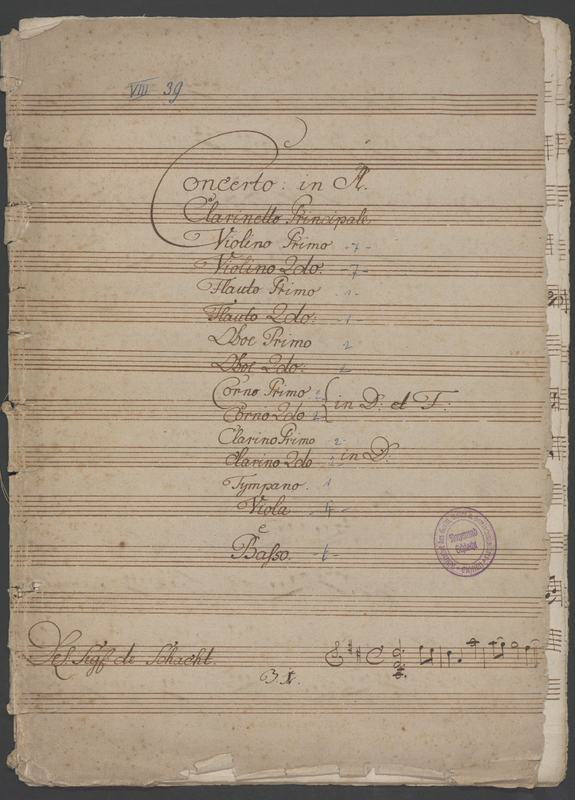 VIII 39
Concerto: in A.
Clarinetto Principale
Violino Primo - 7 -
Violino 2do: - 7 -
Flauto Primo 1
Flauto 2do: - 1 -
Oboe Primo 2
Oboe 2do: 2
Corno Primo 2
Corno 2do 2 in D: et F:
Clarino Primo 2
Clarino 2do in D:
Tympano. 1
Viola - 4 -
è
Basso. - 6 -
Del Sigf: de Schacht.